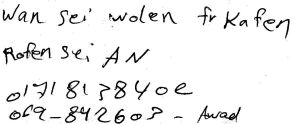 Wan sei wolen fr Kafen
Rofen sei AN
01718138402
069-842603 - Awad